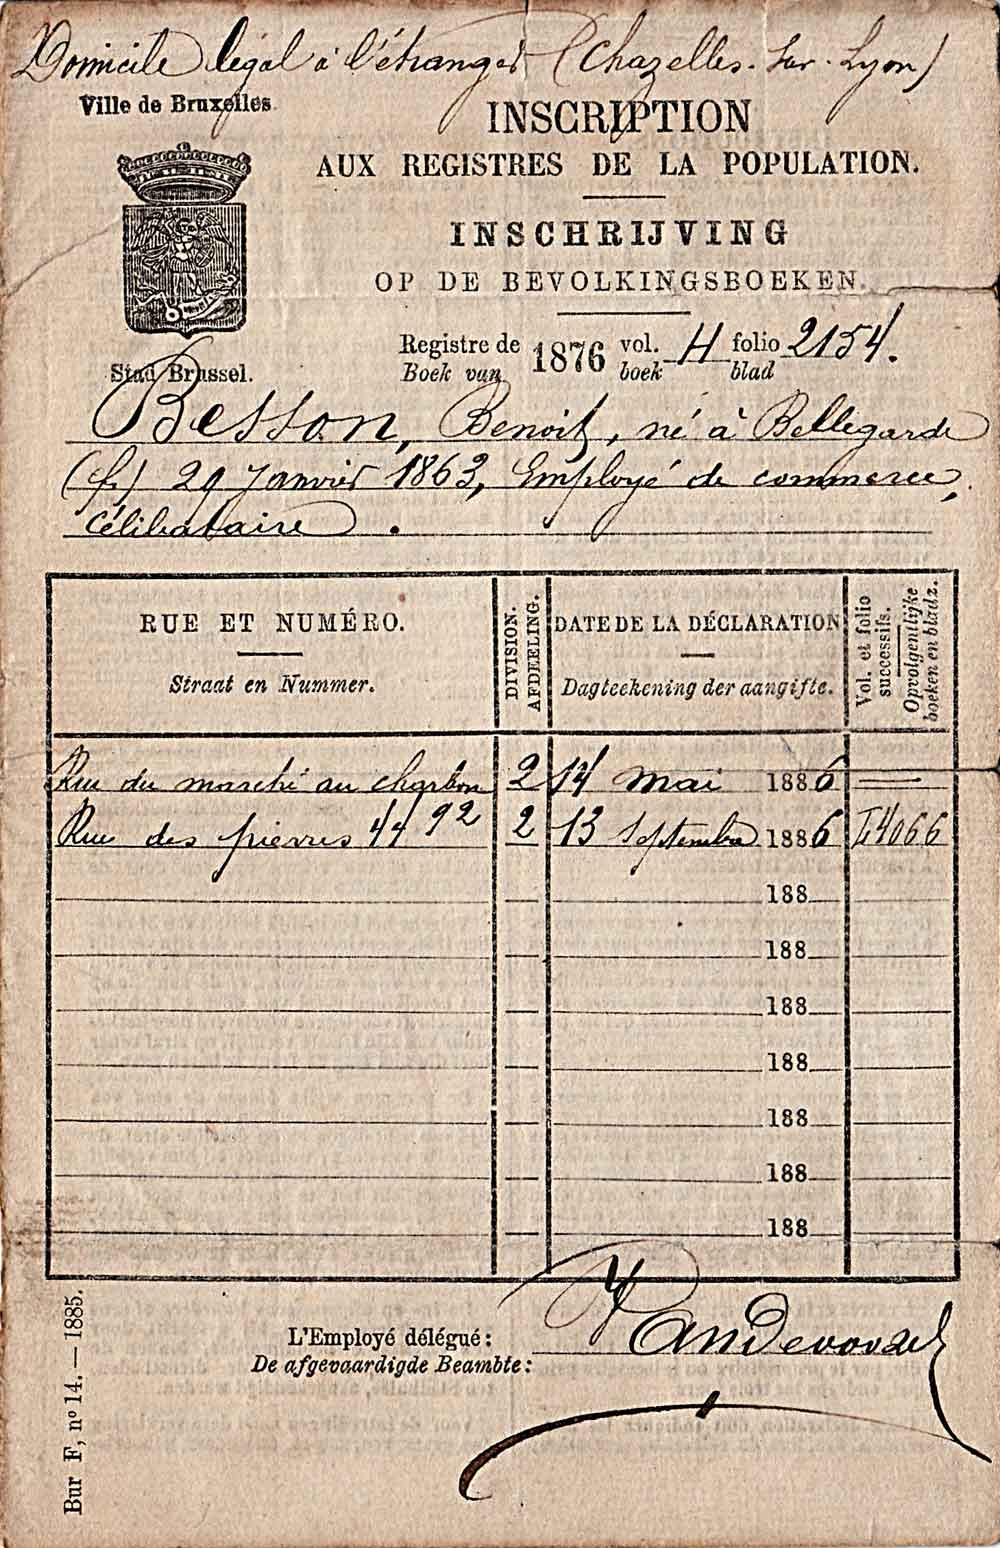 Domicile légal à l'étranger (Chazelles-Sur-Lyon)
Ville de Bruxelles.
INSCRIPTION
AUX REGISTRES DE LA POPULATION.
INSCHRIJVING
OP DE BEVOLKINGSBOEKEN.
Stad Brussel.
Registre de 1876 vol. H folio 2154.
Boek van boek blad
Besson, Benoit, né à Bellegarde
(f) 29 Janvier 1863, Employé de commerce,
célibataire.
RUE ET NUMÉRO.
Straat en Nummer.
DIVISION.
AFDEELING.
DATE DE LA DÉCLARATION
Dagteekening der aangifte.
Vol. et folio
successifs.
Opvolgentlijke
boeken en bladz.
Rue du marché au charbon 92 2 14 mai 1886 —
Rue des pierres 44 2 13 Septembre 1886 I4066
188
188
188
188
188
188
188
L'Employé délégué:
De afgevaardigde Beambte:
Vandevoorde
Bur F, nº 14. — 1885.